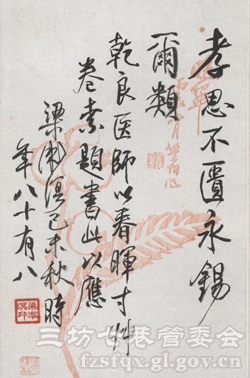 孝思不匱永錫
爾類
乾良医師以春暉寸草
卷索題書此以應
梁漱溟己未秋時
年八十有八
三坊七巷管委会
fzsfqx.gl.gov.cn